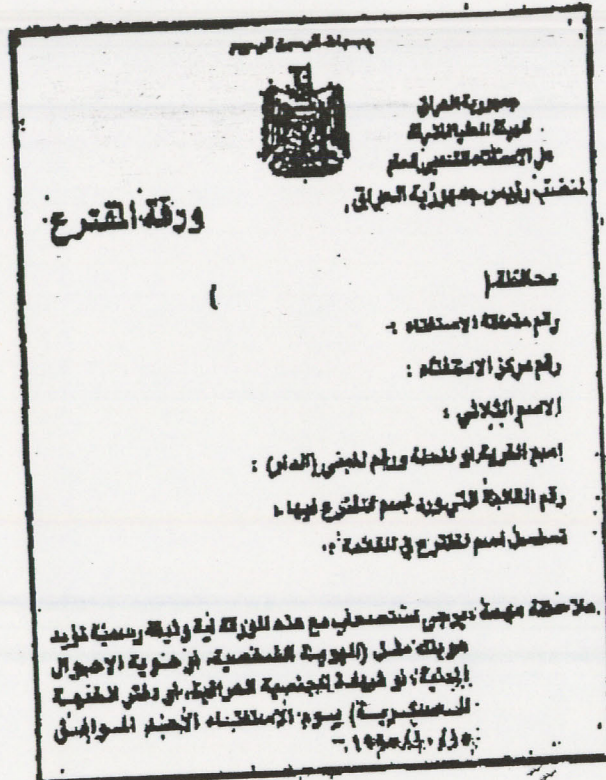 بسم الله الرحمن الرحيم
جمهورية العراق
الهيئة العليا المشرفة
على الاستفتاء الشعبي العام
لمنصب رئيس جمهورية العراق
ورقة المقترع
محافظة (
)
رقم منطقة الاستفتاء :-
رقم مركز الاستفتاء :
الاسم الثلاثي :
اسم القرية او المحلة ورقم المبنى (الدار) :
رقم القائمة التي ورد اسم المقترع فيها :
تسلسل اسم المقترع في القائمة :-
ملاحظة مهمة : يرجى تستصحب مع هذه الورقة اية وثيقة رسمية تؤيد
هويتك مثل (الهوية الشخصية، او هوية الاحوال
المدنية، او شهادة الجنسية العراقية، او دفتر الخدمة
العسكرية) يوم الاستفتاء الاحد الموافق